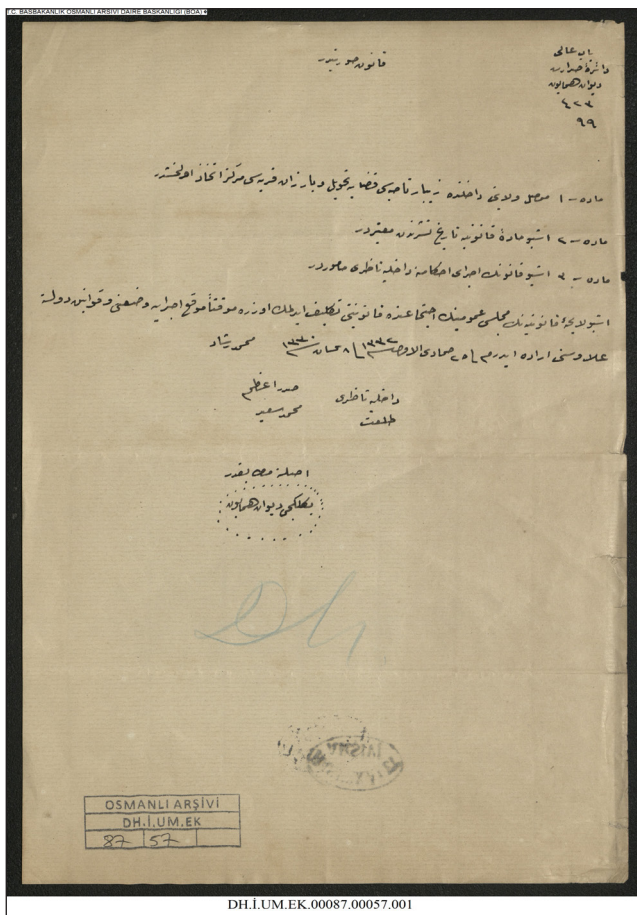 T.C. BAŞBAKANLIK OSMANLI ARŞİVİ DAİRE BAŞKANLIĞI (BOA)
باب عالی
دائرهٔ صدارت
دیوان همایون
٤٢٣
٩٩
قانون صورتیدر
ماده – ١ موصل ولایتی داخلنده زیبار ناحیه‌سی قضایه تحویل و بارزان قریه‌سی مرکز اتخاذ اولنمشدر
ماده – ٢ اشبو مادهٔ قانونیه تاریخ نشرندن معتبردر
ماده – ٣ اشبو قانونك اجرای احکامنه داخلیه ناظری مأموردر
اشبو لایحهٔ قانونیه‌نك مجلس عمومینك اجتماعنده قانونیتی تکلیف ایدلمك اوزره موقتاً موقع اجرایه وضعنی و قوانین دولته
علاوه‌سنی اراده ایدرم ٢٥ جمادی الاول ١٣٣٢ ٨ نیسان ١٣٣٠ محمد رشاد
داخلیه ناظری صدر اعظم
طلعت محمد سعید
اصلنه مطابقدر
بکلکجی دیوان همایون
OSMANLI ARŞİVİ
DH.İ.UM.EK
87 57
DH.İ.UM.EK.00087.00057.001